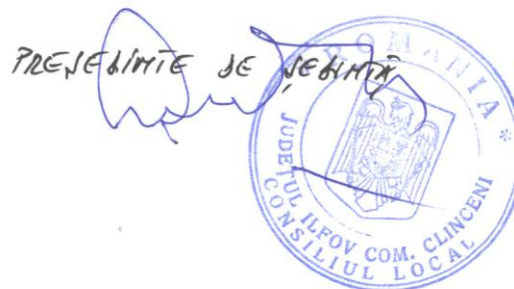 PREȘEDINTE DE ȘEDINȚĂ
ROMANIA *
JUDEȚUL ILFOV COM. CLINCENI
CONSILIUL LOCAL